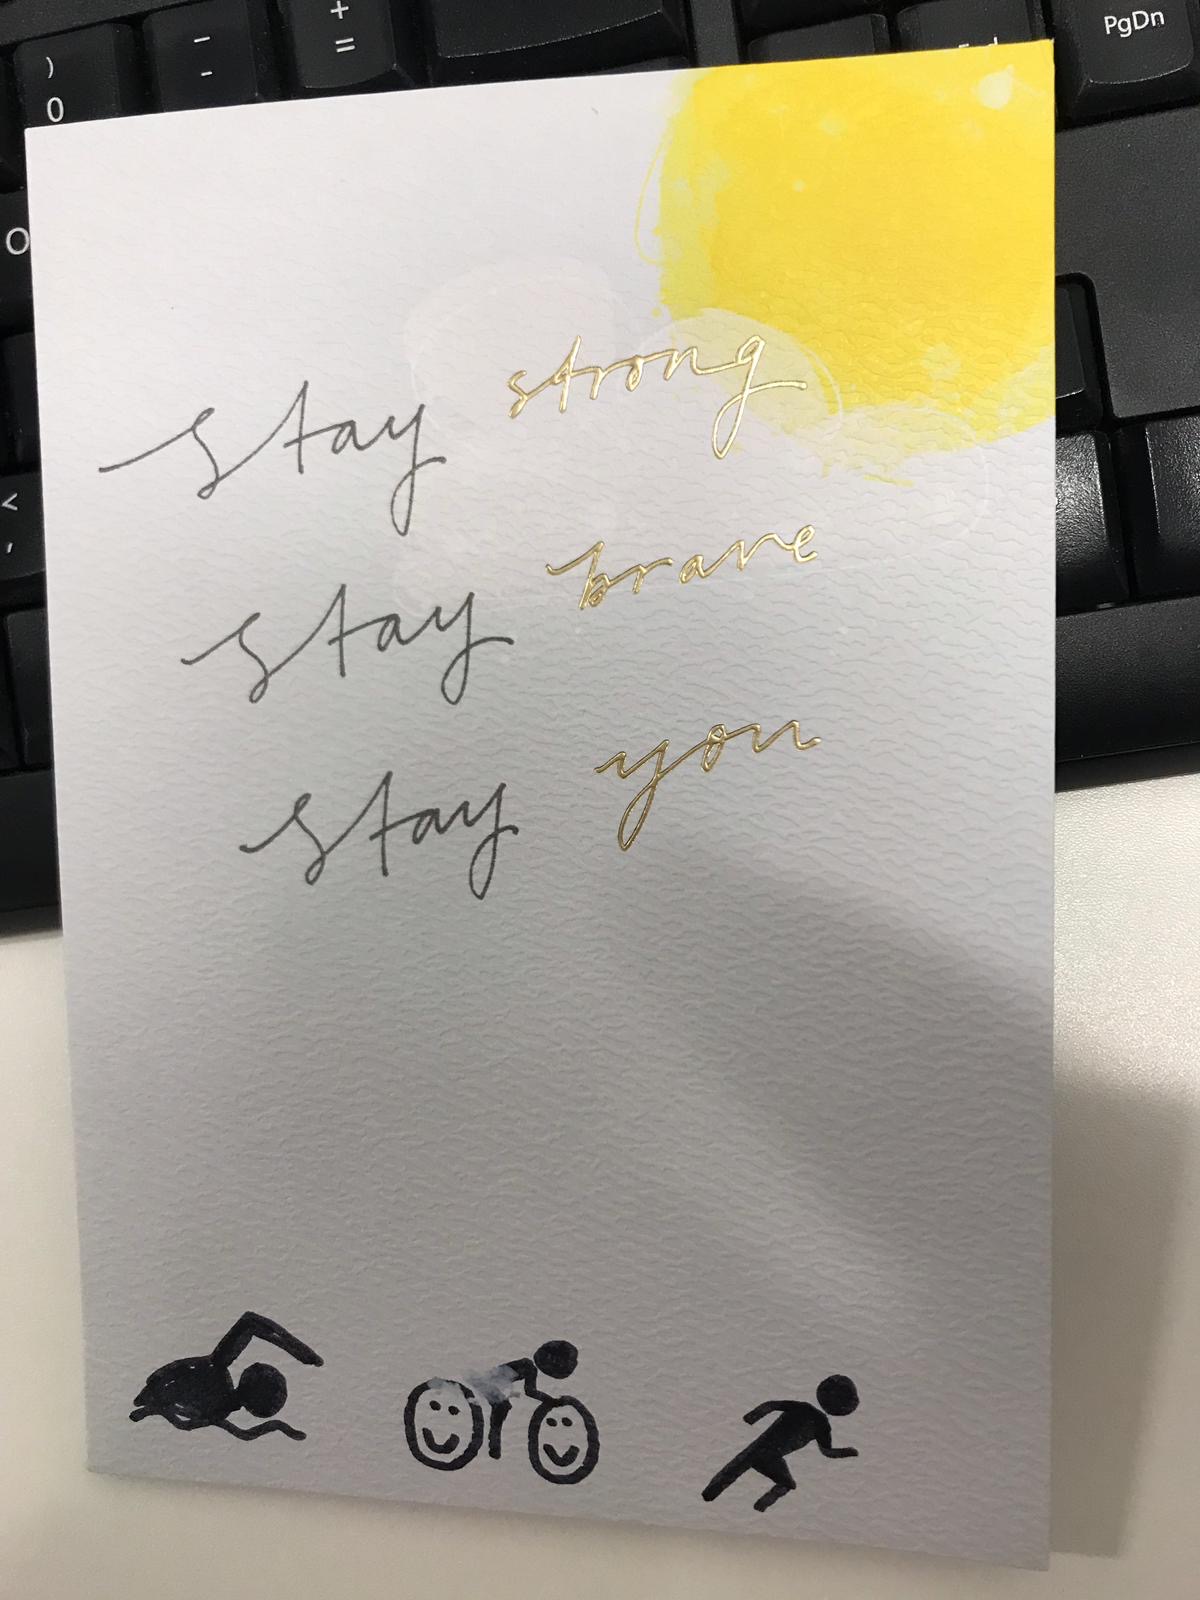 +
=
PgDn
_
-
)
0
O
<
,
stay strong
stay brave
stay you